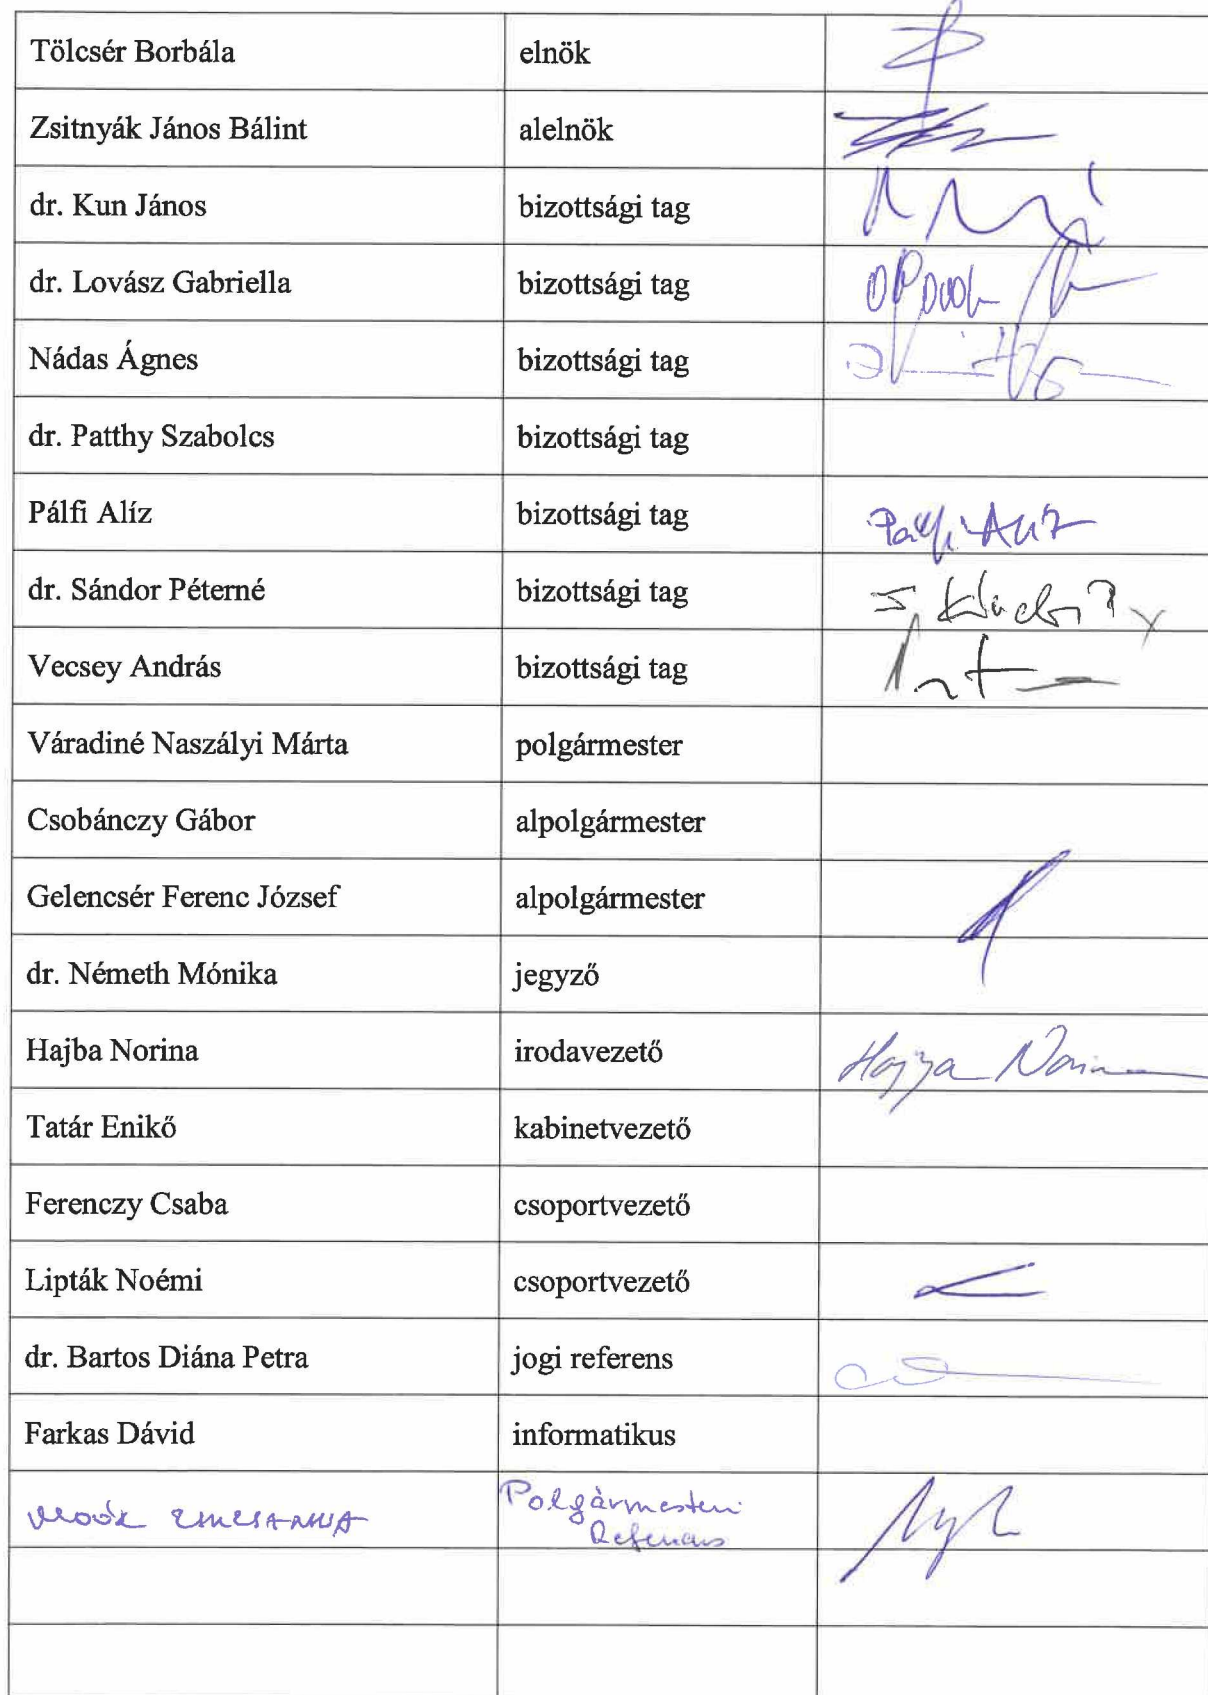 Tölcsér Borbála elnök
Zsitnyák János Bálint alelnök
dr. Kun János bizottsági tag
dr. Lovász Gabriella bizottsági tag
Nádas Ágnes bizottsági tag
dr. Patthy Szabolcs bizottsági tag
Pálfi Alíz bizottsági tag Pálfi Alíz
dr. Sándor Péterné bizottsági tag
Vecsey András bizottsági tag
Váradiné Naszályi Márta polgármester
Csobánczy Gábor alpolgármester
Gelencsér Ferenc József alpolgármester
dr. Németh Mónika jegyző
Hajba Norina irodavezető Hajba Norina
Tatár Enikő kabinetvezető
Ferenczy Csaba csoportvezető
Lipták Noémi csoportvezető
dr. Bartos Diána Petra jogi referens
Farkas Dávid informatikus
Polgármesteri
Referens